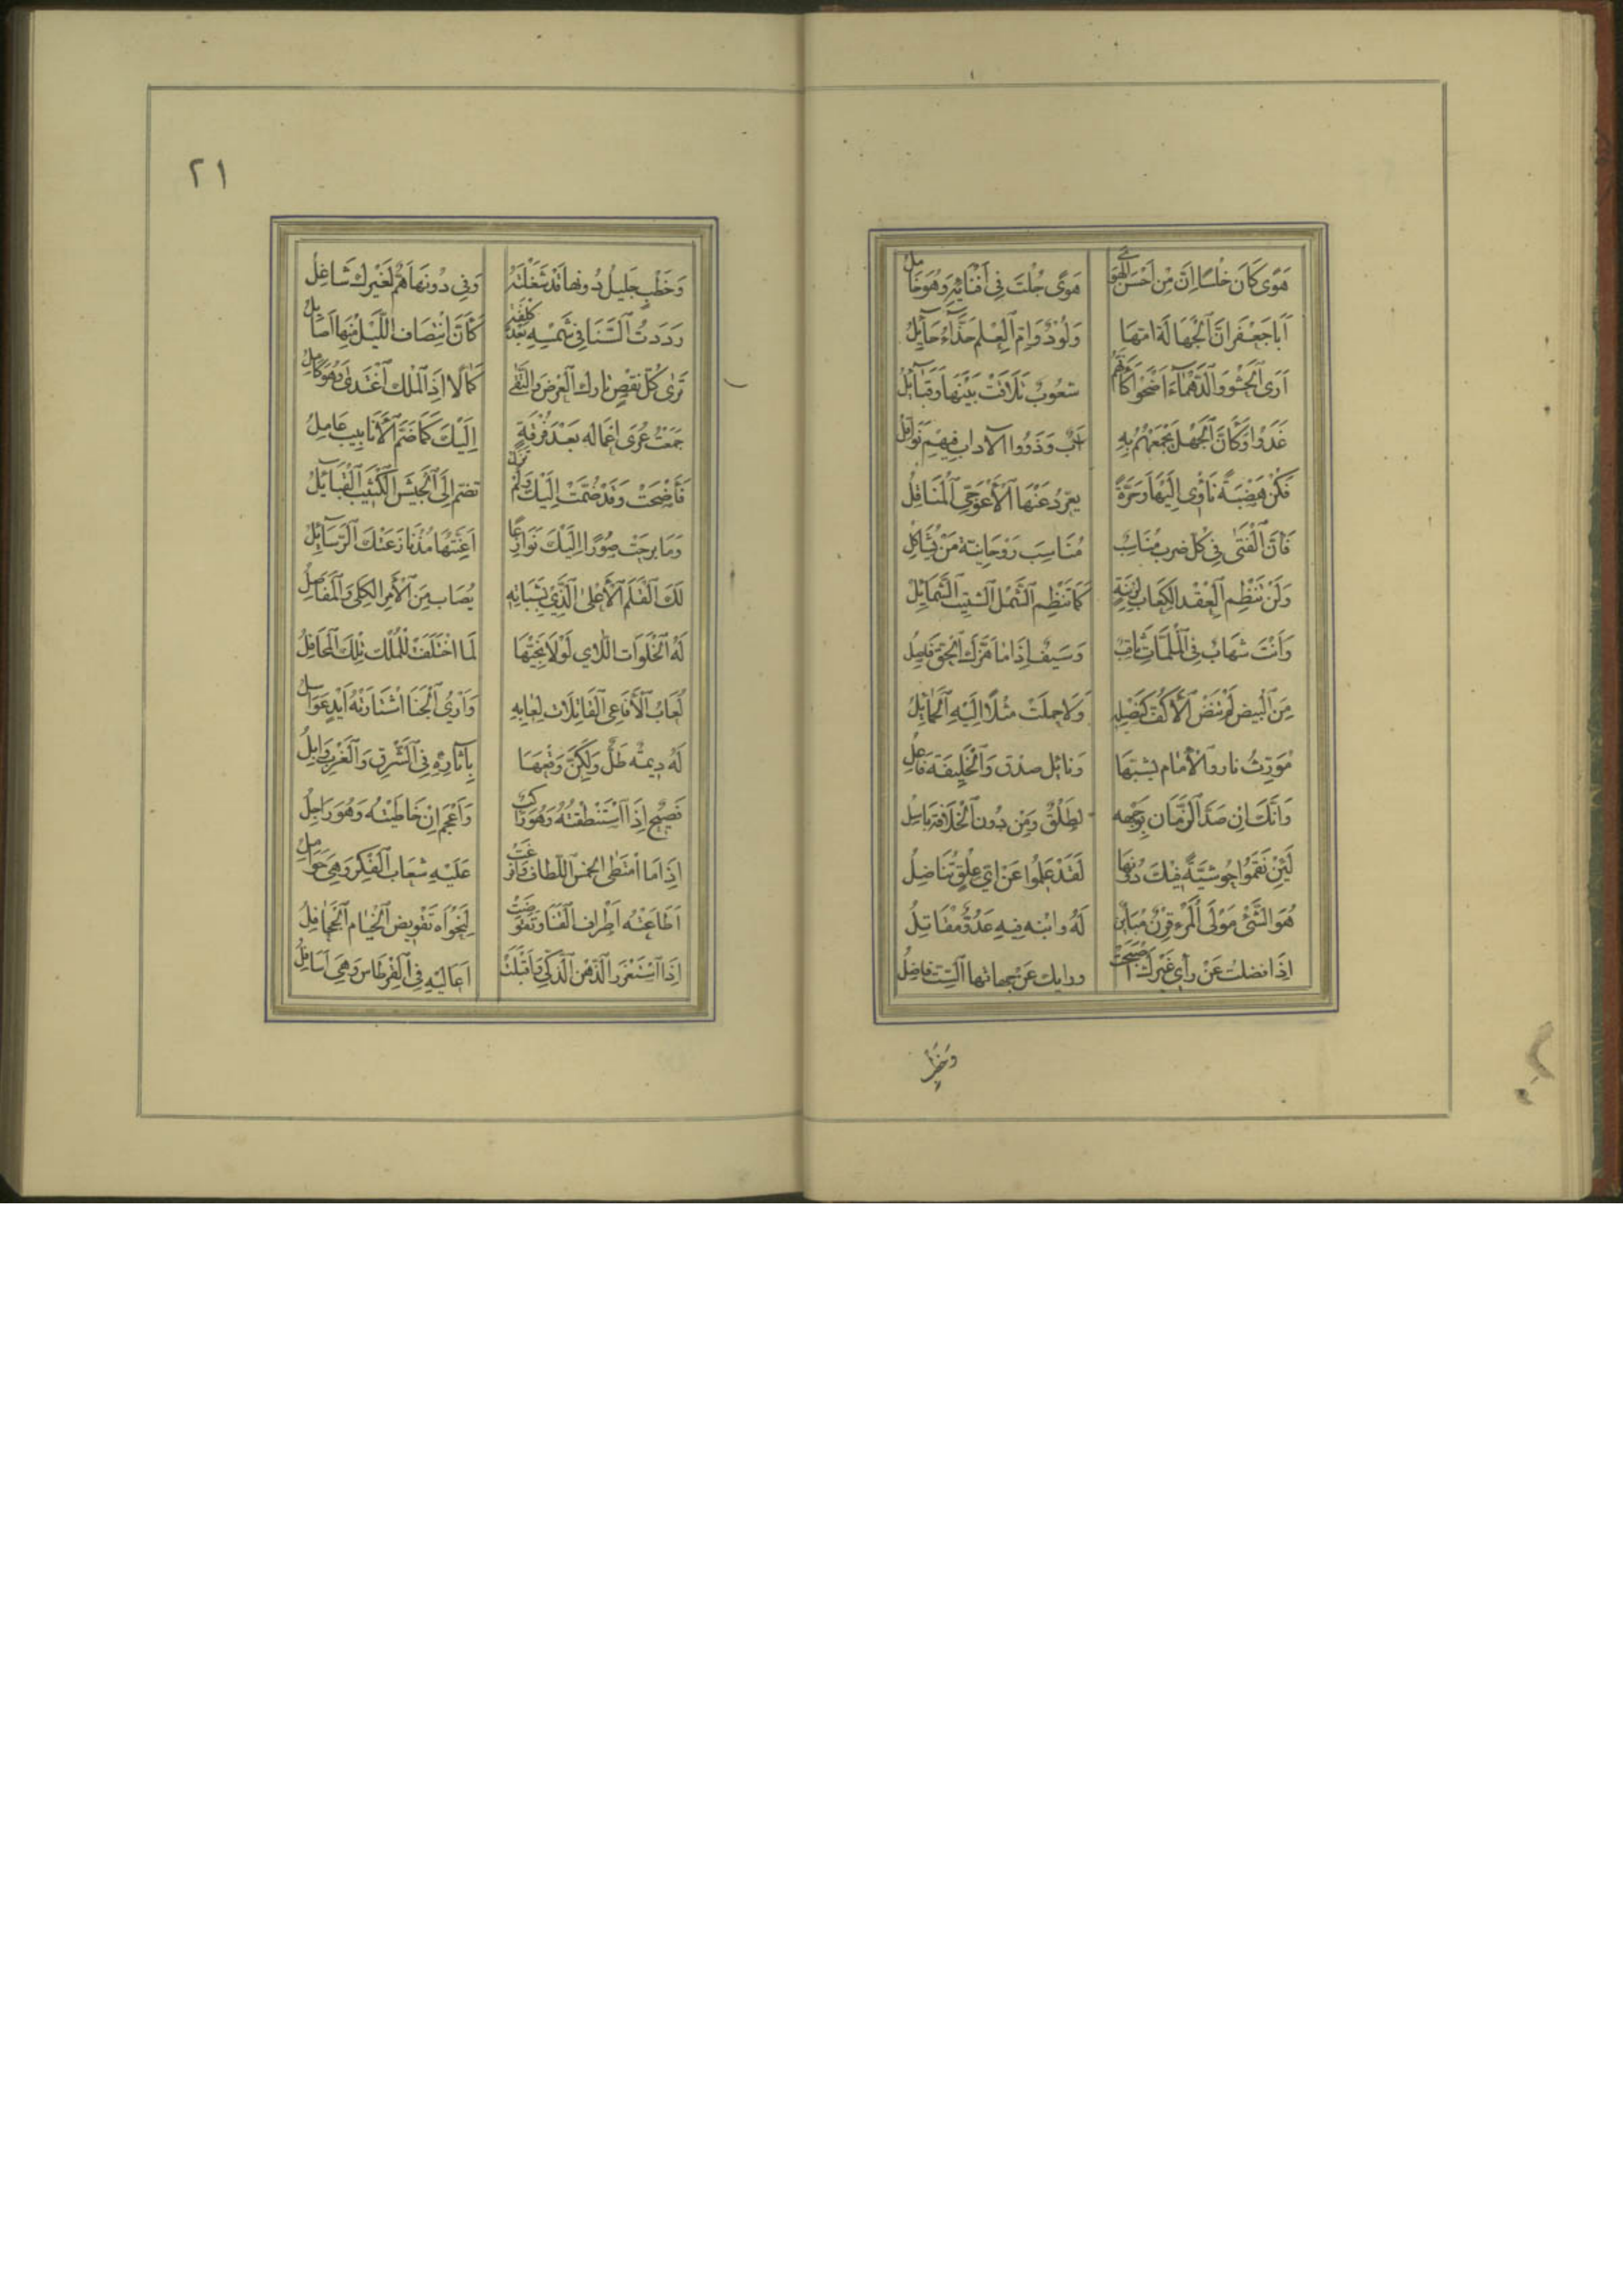 هَوًى كَانَ خَلْسًا اِنَّ مِنْ اَحْسَنِ الهَوَى هَوًى جُلْتَ فِي اَفْنَائِهِ وَهُوَ خَامِلُ
اَبَا جَعْفَرٍ اِنَّ الْجَهَالَةَ امّهَا وَلُودٌ وَاُمّ الْعِلْمِ جَذَّاءُ حَآئِلُ
اَرَى الْحَشْوَ وَالدَّهْمَآءَ اَضْحَوْا كَاَنَّهُمْ شعُوبٌ تَلَاقَتْ بَيْنَهَا وَقَبَآئِلُ
غَدَوْا وَكَاَنَّ الْجَهْلَ يَجْمَعُهُمْ بِهِ اَبٌ وَذَوُوا الآداب فِيهِمْ نَوَاقِلُ
فَكُنْ هَضْبَةً نَأْوِي اِلَيْهَا وَحَرَّةً يعرّدُ عَنْهَا الْاَعْوَجِيّ الْمُنَاقِلُ
فَاِنَّ الْفَتَى فِي كُلّ ضربٍ مُنَاسِبٌ مُنَاسِبَ رَوْحَانِيَّة مَنْ يُشَاكِلُ
وَلَنْ تَنْظِمَ الْعِقْدَ الكَعَابُ لِزِينَةٍ كَمَا تَنْظِم الشَّمْلَ الشتِيتَ الشَّمَآئِلُ
وَاَنْتَ شهَابٌ فِي الْمُلِمَّاتِ ثَاقِبٌ وَسَيفٌ اِذَا مَا هَزَّكَ الْحَقّ فَاصِلُ
مِنَ الْبِيضِ لَمْ تَنْضُ الْاَكُفّ كَنَصْلِهِ وَلَا حملَتْ مثْلًا اِلَيْهِ الْحَمَائِلُ
مُوَرِّثُ نارٍ والْاِمَام يشبّهَا وَقائِل صدْقٍ وَالْخَلِيفَة فَاعِلُ
وَاِنَّكَ اِن صَدَّ الزَّمَان بِوَجْهِه لَطَلْقٌ وَمِنْ دُون الْخِلَافَة بَاسِلُ
لَئِنْ نَقَمُوا حُوشيَّةً فِيكَ دُونَهَا لَقَدْ عَلِمُوا عَنْ اَيِّ عِلْقٍ تُنَاضِلُ
هُوَ الشَّيْءُ مَوْلَى الْمَرْءِ قِرْنٌ مُبَايِنٌ لَهُ وابْنه فِيهِ عَدُوٌّ مُقَاتِلُ
اِذَا فضلتْ عَنْ رأي غَيْرِكَ اَصْبَحَتْ ورايك عَنْ جهاتها الستّ فاضلُ
وَخَطْبٍ
٢١
وَخَطْبٍ جَلِيلٍ دُونها قَدْ شَغَلْتَهُ وَفِي دُونِهَا هَمٌّ لِغَيْرِكَ شَاغِلُ
رَدَدتَ السَّنَا فِي شَمْسِهِ بَعْدَ كلْفَةٍ كَاَنَّ انْتِصَافَ اللَّيْلِ مِنْهَا اَصَائِلُ
تَرَى كُلّ نَقْصٍ تارك الْعِرْضِ وَالتّقَى كَمَالًا اِذَا الْمُلْك اغْتَدَى وَهُوَ كَامِلُ
جَمَعْتَ عُرَى اَعْمَالِهِ بَعْدَ فُرْقَةٍ اِلَيْكَ كَمَا ضَمَّ الْاَنَابِيبَ عَامِلُ
فَاَضْحَتْ وَقَدْ ضُمَّتْ اِلَيْكَ وَلَمْ تَزَلْ تضَمّ اِلَى الْجَيْشِ الْكَثِيبِ الْقَبَآئِلُ
وَمَا بَرِحَتْ صُوْرًا اِلَيْكَ نَوَازِعًا اَعِنَّتُهَا مُذْ نَازَعَتْكَ الرَّسَآئِلُ
لَكَ القَلَم الْاَعْلَى الَّذِي بِشَبَاتِهِ يُصَاب مِنَ الْاَمْرِ الكلَى وَالْمَفَاصِلُ
لَهُ الْخَلَوَات اللَّاي لَوْلَا نَجِيُّهَا لَمَا اخْتَلَفَتْ لِلْمُلْك تِلْكَ الْمَحَافِلُ
لُعَابُ الْاَفَاعِي الْقَاتِلَات لعَابهِ وَاَرْيُ الْجَنَا اشْتَارَتْهُ اَيْدٍ عَوَاسِلُ
لَهُ دِيمة طَلٌّ وَلَكِنَّ وَقْعَهَا بِآثَارِهِ فِي الشَّرْقِ وَالْغَرْبِ وَابِلُ
فَصِيحٌ اِذَا اسْتَنْطَقْتَهُ وَهُوَ رَاكِبٌ وَاَعْجَم اِنْ خَاطَبْتَه وَهُوَ رَاجِلُ
اِذَا مَا امْتَطَى الخمْسَ اللِّطَافَ وَاُفْرِغَتْ عَلَيْهِ شعَابُ الْفِكْرِ وَهِيَ حَوَامِلُ
اَطَاعَتْه اَطْرَاف الْقَنَا وَتَقَوَّضَتْ لِنَجْوَاهُ تَقْوِيضَ الْخِيَام الْجَحَافِلُ
اِذَا اسْتَغْزَرَ الذّهْن الذَّكِيّ وَاَقْبَلَتْ اَعَالِيهِ فِي الْقِرْطَاسِ وَهِيَ اَسَافِلُ